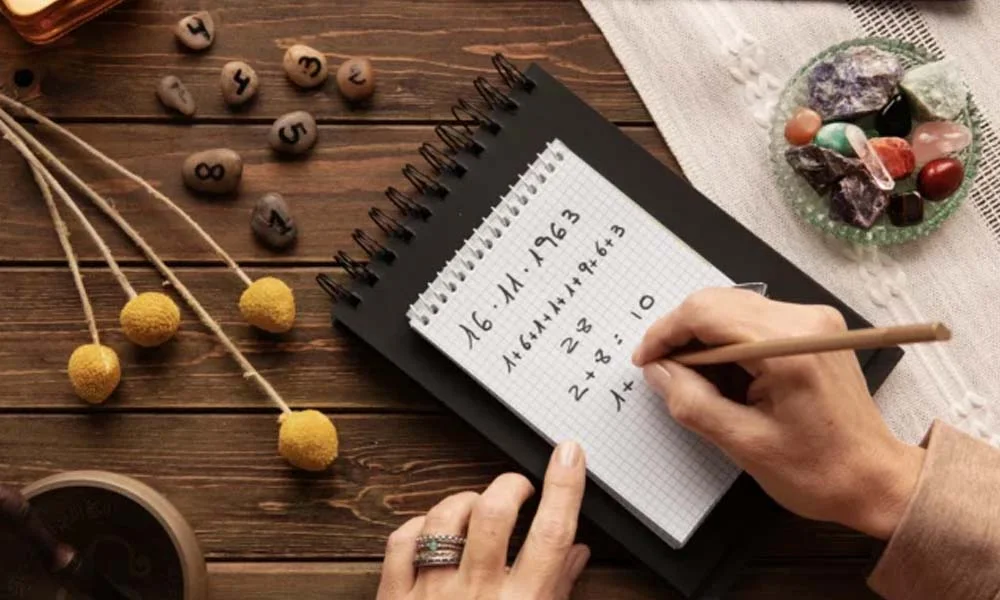 4
3
5
8
1
16.11.1963
1+6+1+1+1+9+6+3
28
2+8: 10
1+